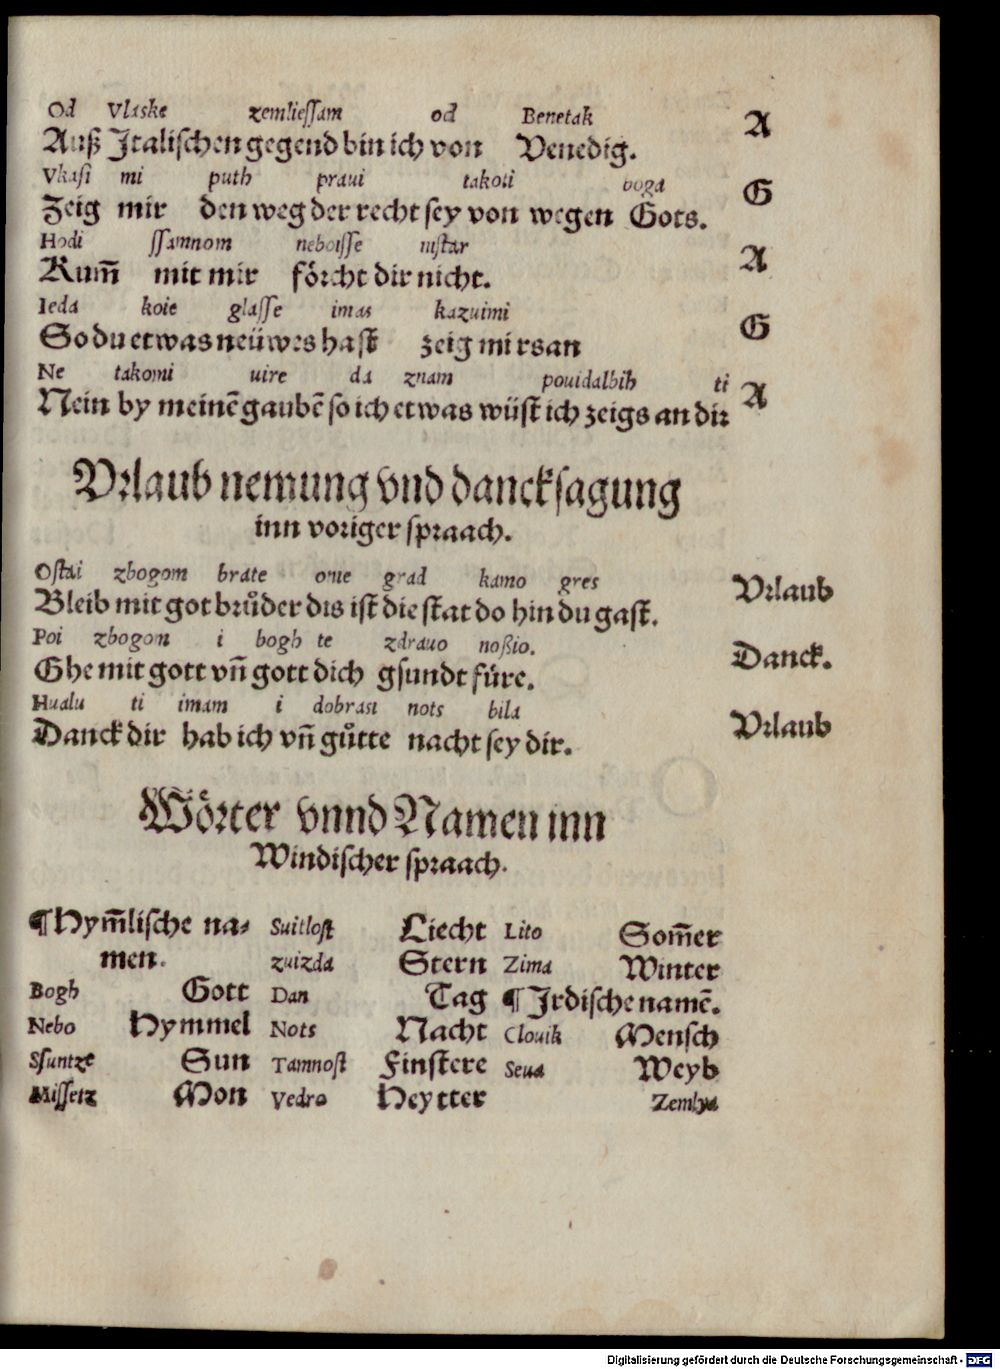 Od Vlaske zemliessam od Benetak
Auß Jtalischen gegend bin ich von Venedig. A
Vkasi mi puth praui takoti boga
Zeig mir den weg der recht sey von wegen Gots. G
Hodi ssamnom neboisse nistar
Kum̃ mit mir förcht dir nicht. A
Ieda koie glasse imas kazuimi
So du etwas neüwes hast zeig mirs an G
Ne takomi uire da znam pouidalbih ti
Nein by meinē gaubē so ich etwas wüst ich zeigs an dir A
Vrlaub nemung vnd dancksagung
inn voriger spraach.
Ostai zbogom brate oue grad kamo gres
Bleib mit got brůder dis ist die stat do hin du gast. Vrlaub
Poi zbogon i bogh te zdrauo noßio.
Ghe mit gott vñ gott dich gsundt füre. Danck.
Hualu ti imam i dobrasi nots bila
Danck dir hab ich vñ gůtte nacht sey dir. Vrlaub
Wörter vnnd Namen inn
Windischer spraach.
¶ Hym̃lische na-
men.
Bogh Gott
Nebo Hymmel
Ssuntze Sun
Missetz Mon
Suitlost Liecht
zuizda Stern
Dan Tag
Nots Nacht
Tamnost Finstere
Vedro Heytter
Lito Som̃er
Zima Winter
¶ Jrdische namē.
Clouik Mensch
Seua Weyb
Zemlya
Digitalisierung gefördert durch die Deutsche Forschungsgemeinschaft - DFG